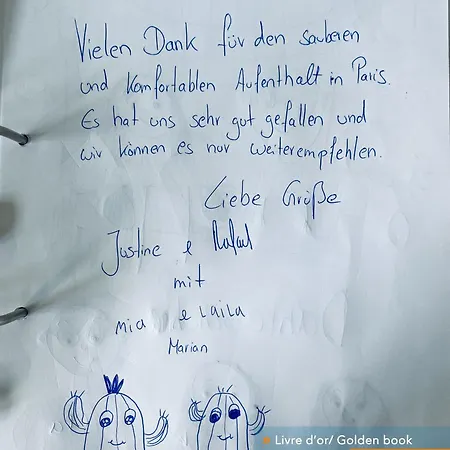 Vielen Dank für den sauberen
und komfortablen Aufenthalt in Paris.
Es hat uns sehr gut gefallen und
wir können es nur weiterempfehlen.
Liebe Grüße
Justine & Rafael
mit
Mia & Laila
Marian
Livre d'or/ Golden book